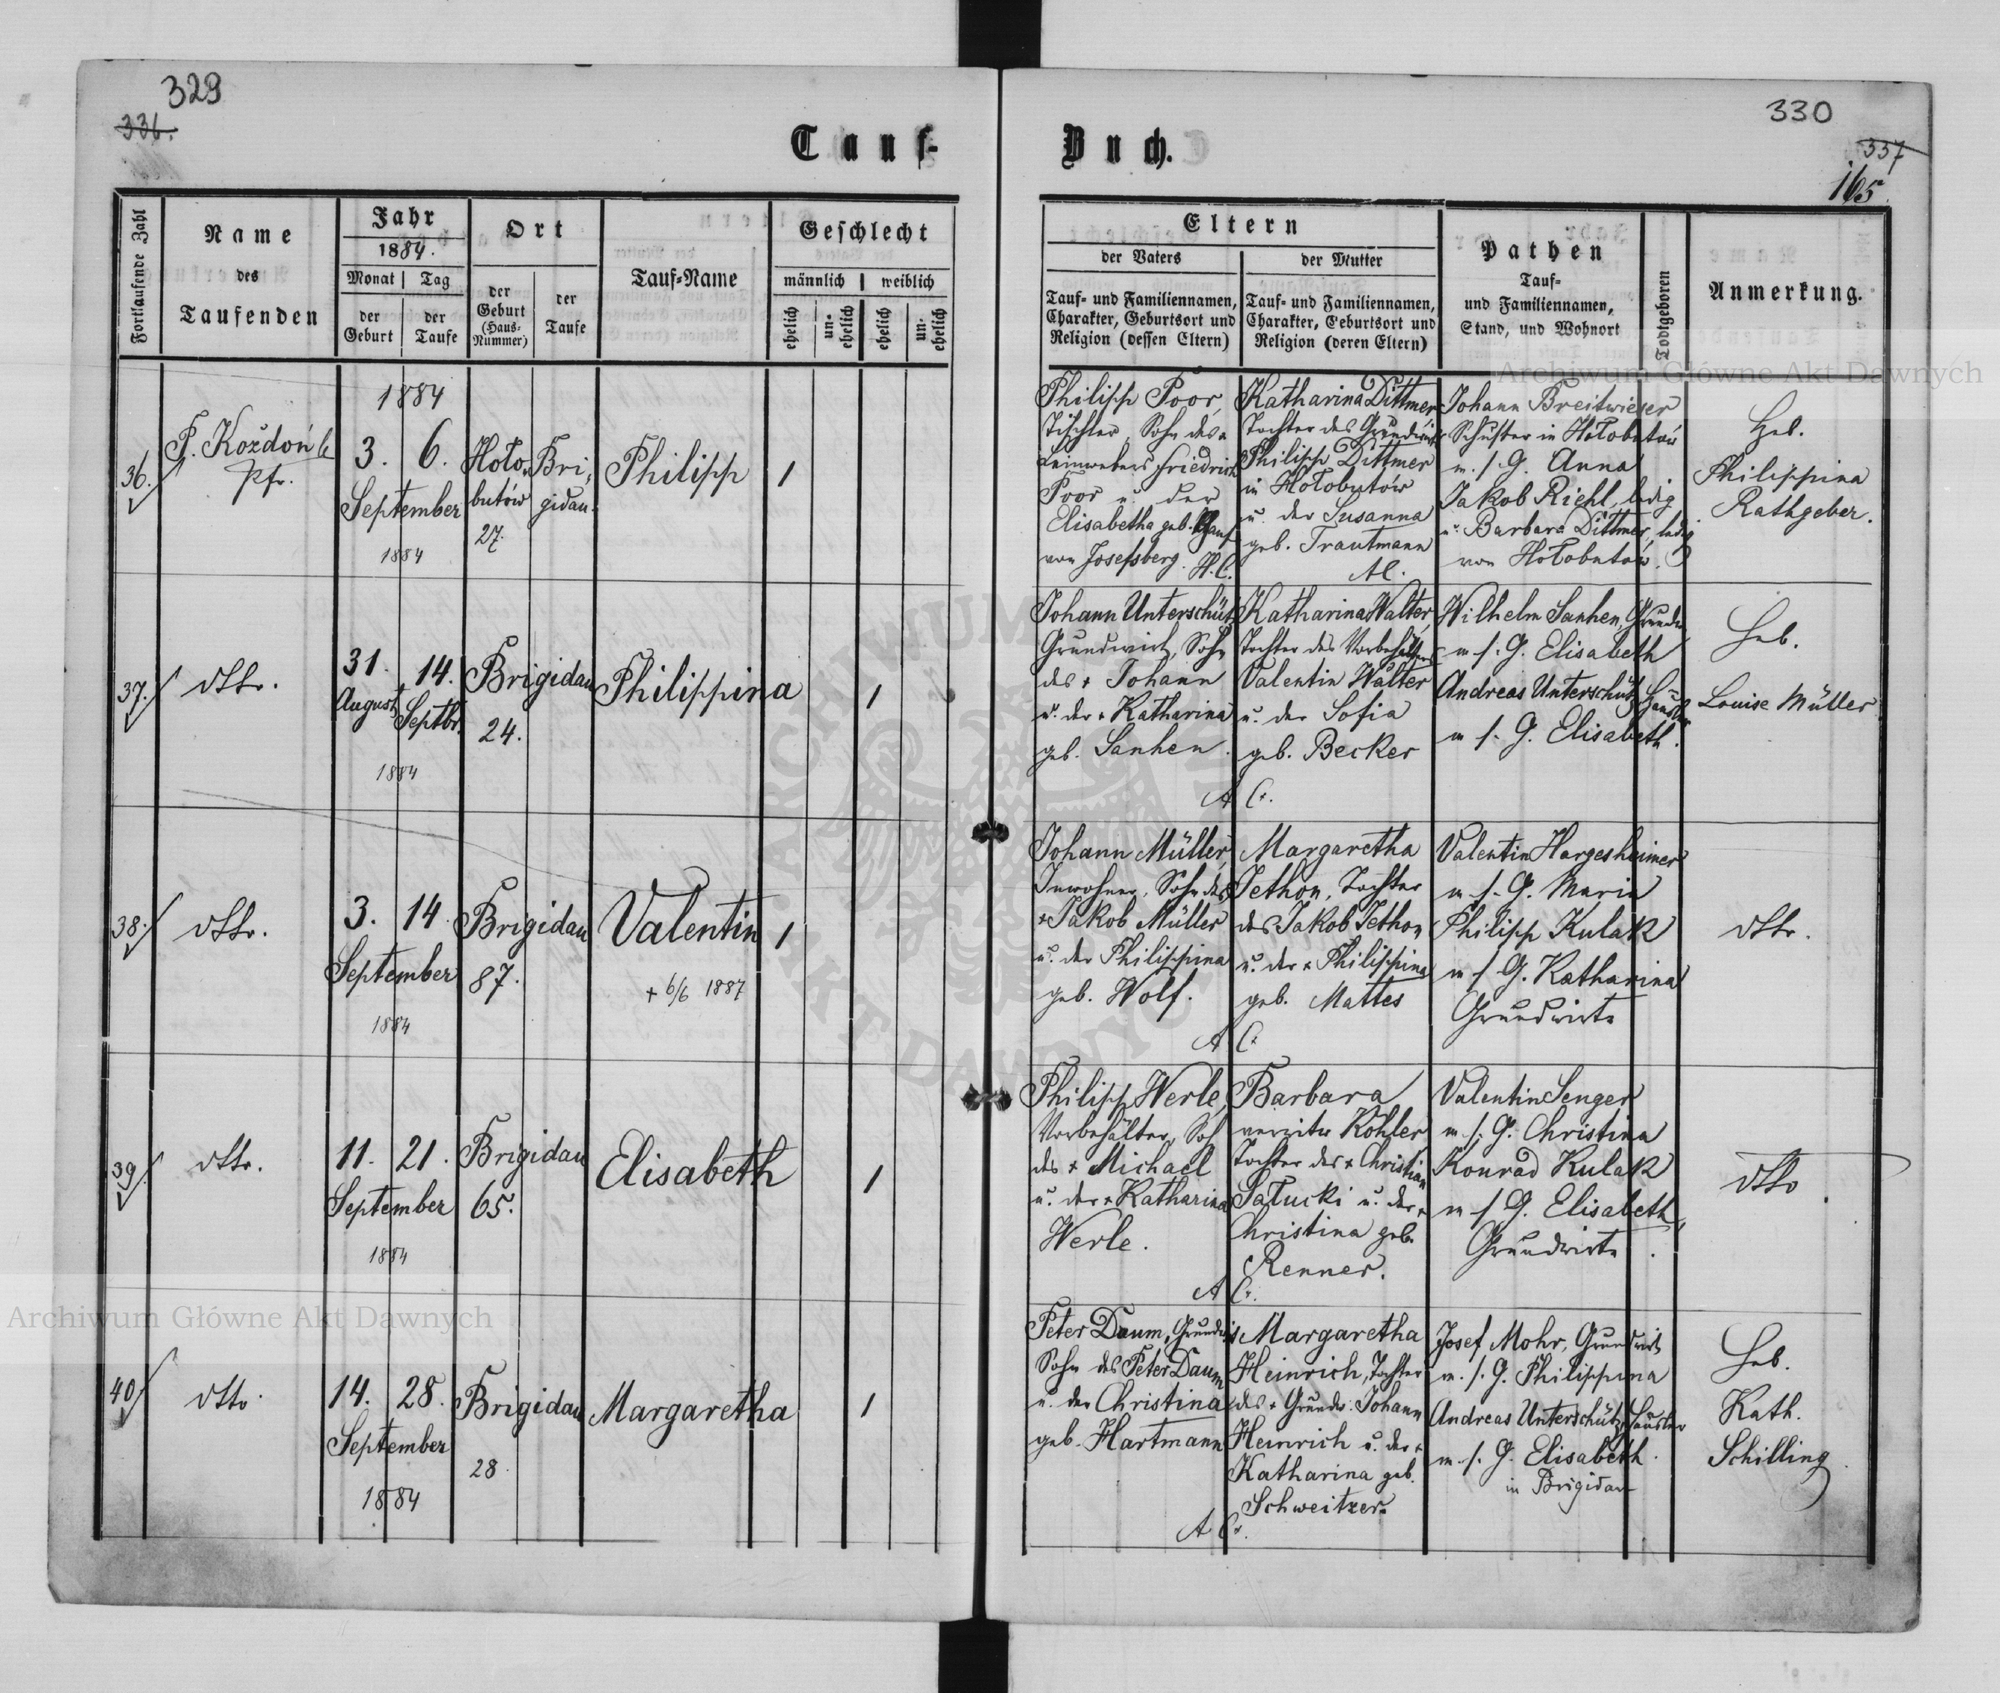 329
336.
Tauf-
Fortlaufende Zahl
Name
des
Taufenden
Jahr
1884.
Monat
Tag
der
Geburt
der
Taufe
Ort
der
Geburt
(Haus-
Nummer)
der
Taufe
Tauf-Name
Geschlecht
männlich
weiblich
ehelich
un-
ehelich
ehelich
un-
ehelich
36.
P. Kożdoń
Pfr.
1884
3. 6.
September
1884
Hoło-
butów
27.
Bri-
gidau.
Philipp
1
37.
dtto.
31. 14.
August Septbr.
1884
Brigidau
24.
Philippina
1
38.
dtto.
3. 14.
September
1884
Brigidau
87.
Valentin
+ 6/6 1887
1
39.
dtto.
11. 21.
September
1884
Brigidau
65.
Elisabeth
1
40
dtto.
14. 28.
September
1884
Brigidau
28.
Margaretha
1
330
337
165.
Buch.
Eltern
der Vaters
Tauf- und Familiennamen,
Charakter, Geburtsort und
Religion (dessen Eltern)
der Mutter
Tauf- und Familiennamen,
Charakter, Geburtsort und
Religion (deren Eltern)
Pathen
Tauf-
und Familiennamen,
Stand, und Wohnort
Todtgeboren
Anmerkung.
Philipp Poor,
Tischler, Sohn des
Leinwebers Friedrich
Poor u. der
Elisabetha geb.
von Josefsberg. H.C.
Katharina Dittmer
Tochter des Grundwirt
Philipp Dittmer
in Hołobutów
u. der Susanna
geb. Trautmann
AC.
Johann Breitwieser
Schuster in Hołobutów
m. s. G. Anna
Jakob Riehl, ledig
u. Barbara Dittmer, ledig
von Hołobutów.
Heb.
Philippina
Rathgeber.
Johann Unterschütz
Grundwirt, Sohn
des + Johann
u. der + Katharina
geb. Sanhen.
Katharina Walter,
Tochter des Vorbehälters
Valentin Walter
u. der Sofia
geb. Becker
A C.
Wilhelm Sanhen, Grundw
m s. G. Elisabeth
Andreas Unterschütz Häusler
m s. G. Elisabeth.
Heb.
Louise Müller
Johann Müller,
Inwohner, Sohn des
+ Jakob Müller
u. der Philippina
geb. Wolf.
Margaretha
Jethon, Tochter
des Jakob Jethon
u. der + Philippina
geb. Mattes
A C.
Valentin Hargesheimer
m. s. G. Maria
Philipp Kulak
m s. G. Katharina
Grundwirte
dtto.
Philipp Werle,
Vorbehälter, Sohn
des + Michael
u. der + Katharina
Werle.
Barbara
verwitw Köhler
Tochter des + Christian
Sałucki u. der +
Christina geb.
Renner.
A C.
Valentin Senger
m. s. G. Christina
Konrad Kulak
m s. G. Elisabeth,
Grundwirte.
dtto.
Peter Daum, Grundwirt
Sohn des Peter Daum
u. der Christina
geb. Hartmann
Margaretha
Heinrich, Tochter
des + Grundw. Johann
Heinrich u. der +
Katharina geb.
Schweitzer.
A C.
Josef Mohr, Grundwirt
m. s. G. Philippina
Andreas Unterschütz, Häusler
m. s. G. Elisabeth.
in Brigidau
Heb.
Kath.
Schilling.
Archiwum Główne Akt Dawnych
Archiwum Główne Akt Dawnych
ARCHIWUM
AKT DAWNYCH